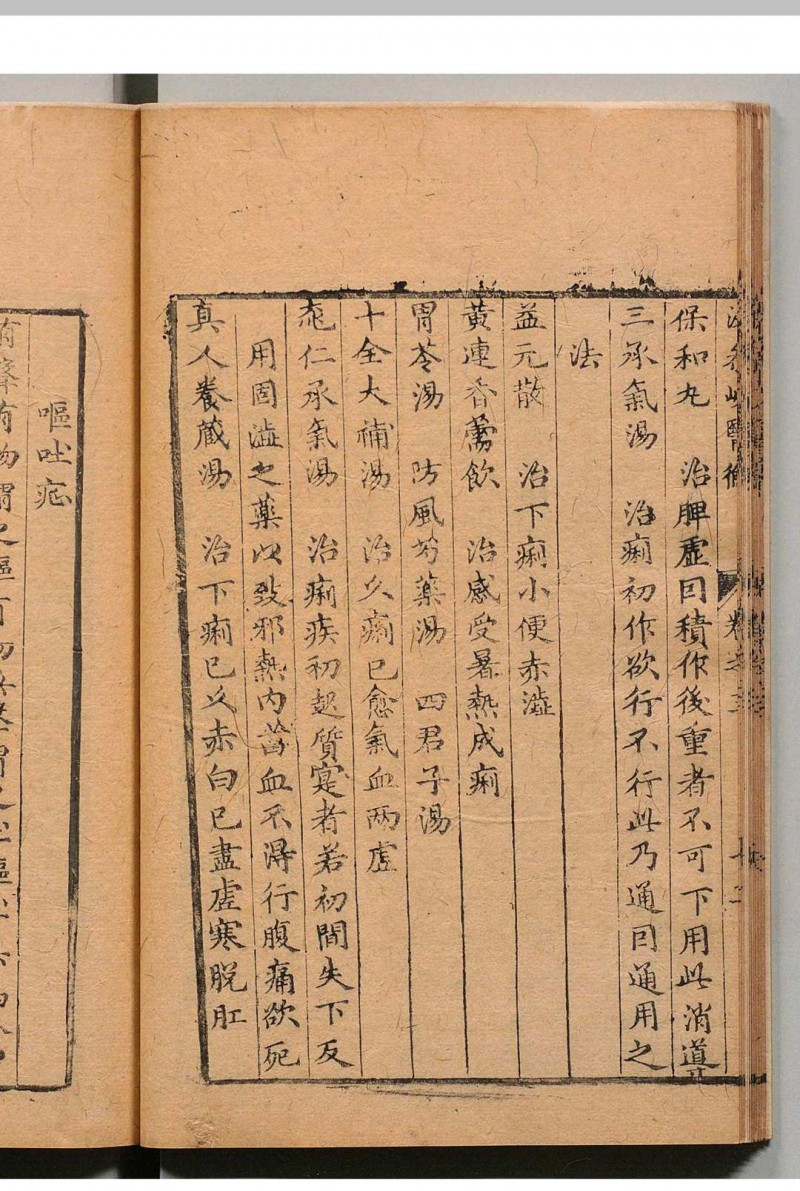 保和丸　治脾虛囙積作後重者不可下用此消導
三承氣湯　治痢初作欲行不行此乃通囙通用之
法
益元散　治下痢小便赤澁
黃連香薷飲　治感受暑熱成痢
胃苓湯　防風芍藥湯　四君子湯
十全大補湯　治久痢已愈氣血兩虛
桃仁承氣湯　治痢疾初起質寔者若初間失下反
用固澁之藥以致邪熱内蓄血不得行腹痛欲死
真人養藏湯　治下痢已久赤白已盡虛寒脱肛
嘔吐症